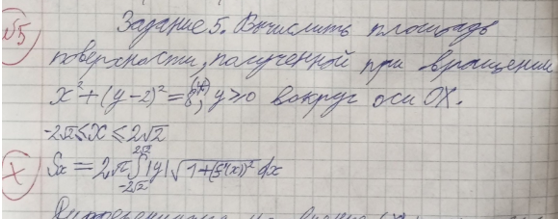 √5 Задание 5. Вычислить площадь
поверхности, полученной при вращении
x² + (y-2)² = 8, y≥0 вокруг оси OX.
-2√2 ≤ x ≤ 2√2
Sx = 2π ∫_{-2√2}^{2√2} |y| √(1+(f'(x))²) dx